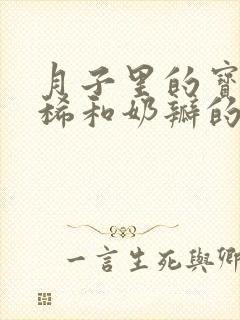 月子里的寶
稀和奶瓣的
一言生死與卿